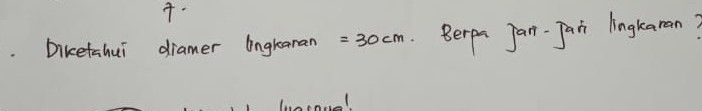 7.
. Diketahui diamer lingkaran = 30 cm. Berpa Jari - Jari lingkaran?